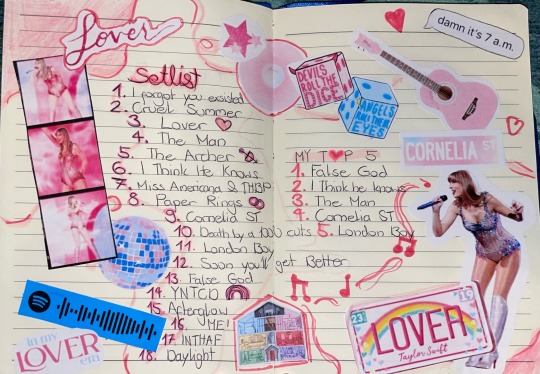 Lover
Setlist
1. I forgot you exsisted
2. Cruel Summer
3. Lover
4. The Man
5. The Archer
6. I Think He Knows
7. Miss Americana & THBP
8. Paper Rings
9. Cornelia ST
10. Death by a 1000 cuts
11. London Boy
12. Soon you'll get Better
13. False God
14. YNTCD
15. Afterglow
16. ME!
17. INTHAF
18. Daylight
in my
LOVER
era
DEVILS
ROLL THE
DICE
ANGELS
ROLL THEIR
EYES
damn it's 7 a.m.
CORNELIA ST
MY TOP 5
1. False God
2. I Think he knows
3. The Man
4. Cornelia ST
5. London Boy
23 19
LOVER
Taylor Swift